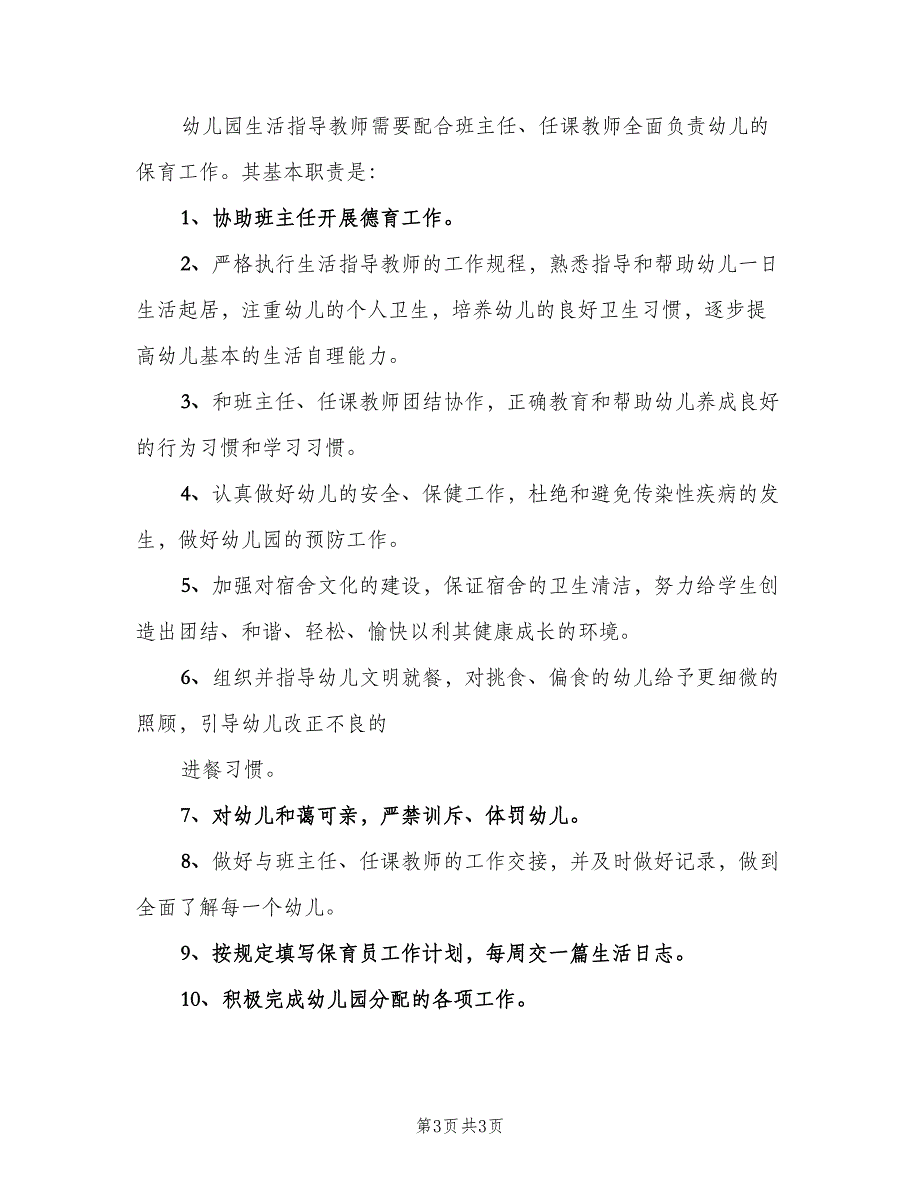 幼儿园生活指导教师需要配合班主任、任课教师全面负责幼儿的
保育工作。其基本职责是：
1、协助班主任开展德育工作。
2、严格执行生活指导教师的工作规程，熟悉指导和帮助幼儿一日
生活起居，注重幼儿的个人卫生，培养幼儿的良好卫生习惯，逐步提
高幼儿基本的生活自理能力。
3、和班主任、任课教师团结协作，正确教育和帮助幼儿养成良好
的行为习惯和学习习惯。
4、认真做好幼儿的安全、保健工作，杜绝和避免传染性疾病的发
生，做好幼儿园的预防工作。
5、加强对宿舍文化的建设，保证宿舍的卫生清洁，努力给学生创
造出团结、和谐、轻松、愉快以利其健康成长的环境。
6、组织并指导幼儿文明就餐，对挑食、偏食的幼儿给予更细微的
照顾，引导幼儿改正不良的
进餐习惯。
7、对幼儿和蔼可亲，严禁训斥、体罚幼儿。
8、做好与班主任、任课教师的工作交接，并及时做好记录，做到
全面了解每一个幼儿。
9、按规定填写保育员工作计划，每周交一篇生活日志。
10、积极完成幼儿园分配的各项工作。
第3页 共3页